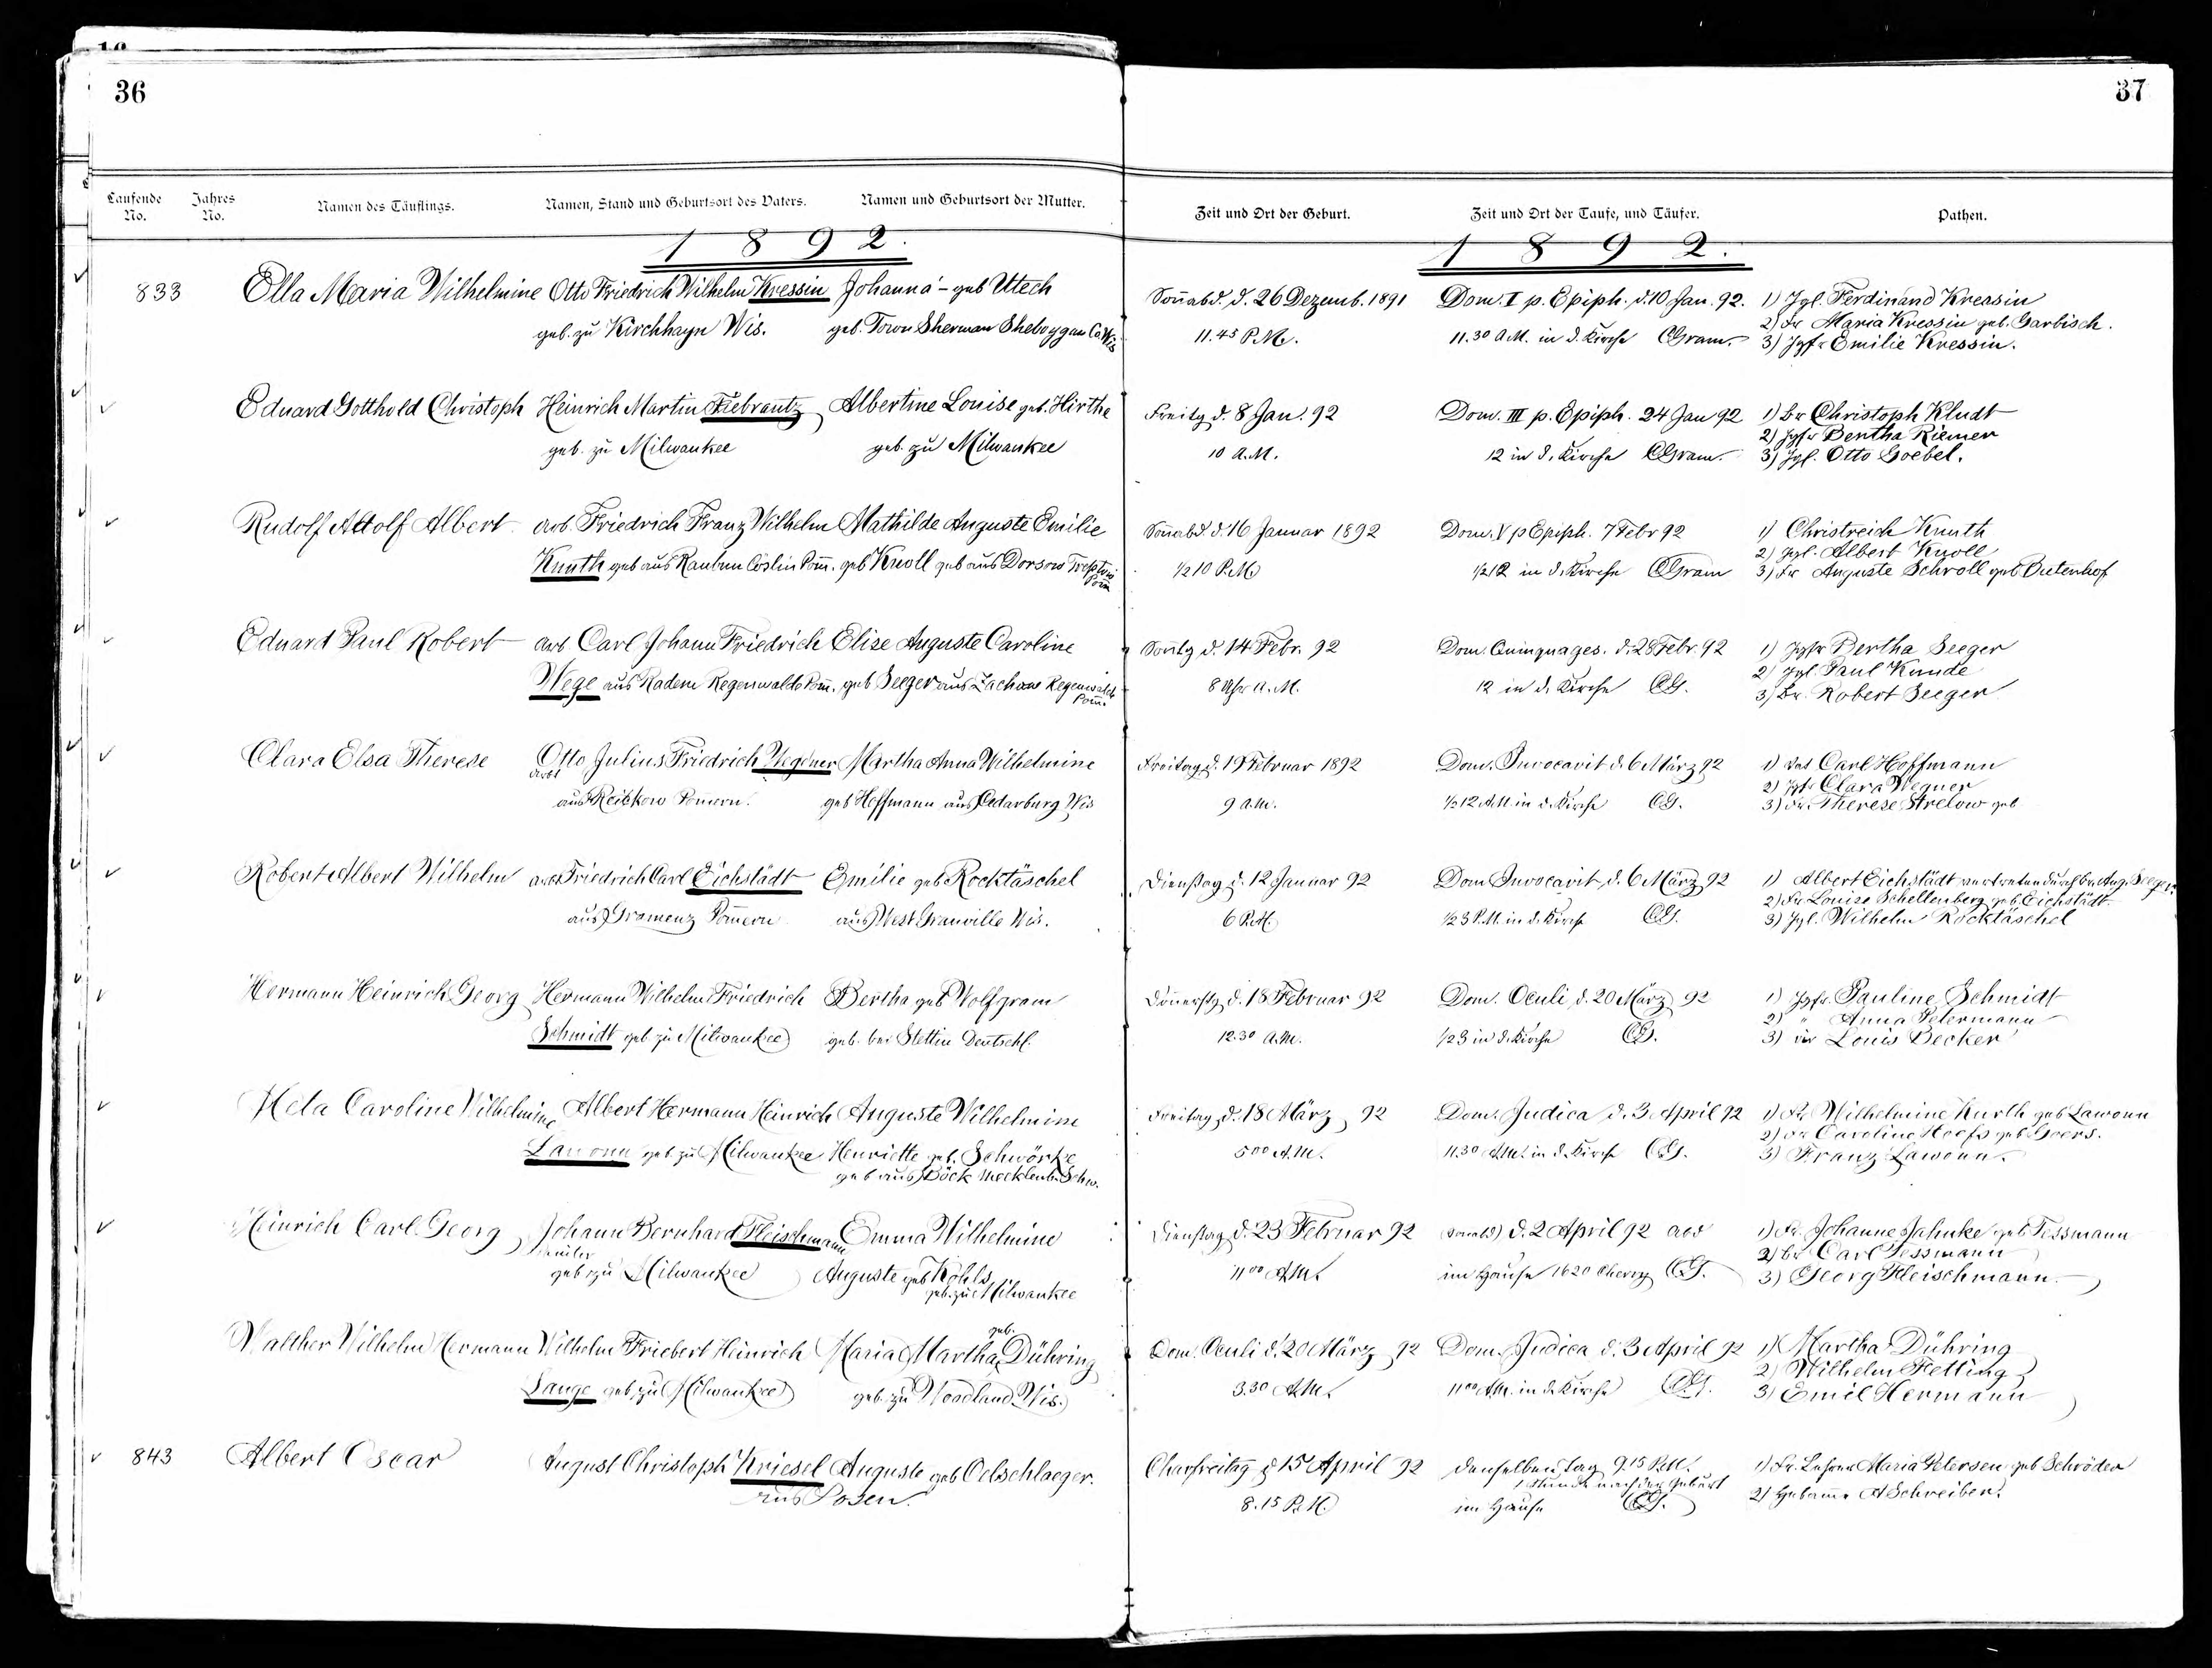 36
37
Laufende No.
Jahres No.
Namen des Täuflings.
Namen, Stand und Geburtsort des Vaters.
Namen und Geburtsort der Mutter.
Zeit und Ort der Geburt.
Zeit und Ort der Taufe, und Täufer.
Pathen.
1 8 9 2.
1 8 9 2.
833 Ella Maria Wilhelmine Otto Friedrich Wilhelm Kressin Johanna geb Uttech
geb. zu Kirchhayn Wis. geb. Town Sherman Sheboygan Co. Wis
Soñabd. d. 26 Dezemb. 1891 Dom. I p. Epiph. d. 10 Jan. 92. 1) Jgl. Ferdinand Kressin
2) Fr Maria Kressin geb. Garbisch.
11.45 P.M. 11.30 A.M. in d. Kirche CGram. 3) Jgfr Emilie Kressin.
Eduard Gotthold Christoph Heinrich Martin Fiebrantz Albertine Louise geb. Hirthe
geb. zu Milwaukee geb. zu Milwaukee
Freitg d. 8 Jan. 92 Dom. III p. Epiph. 24 Jan 92 1) Hr Christoph Kludt
2) Jgfr Bertha Riemer
10 A.M. 12 in d. Kirche CGram. 3) Jgl. Otto Goebel.
Rudolf Adolf Albert arb. Friedrich Franz Wilhelm Mathilde Auguste Emilie
Knuth geb aus Cöslin Pom̃. geb Knoll geb aus Dorsow Treptow
Pom̃
Soñabd. d. 16 Januar 1892 Dom. V p Epiph. 7 Febr 92 1) Christreich Knuth
2) Jgl. Albert Knoll
1/2 10 P.M. 1/2 12 in d. Kirche CGram 3) Fr Auguste Schroll geb
Eduard Paul Robert arb Carl Johann Friedrich Elise Auguste Caroline
Wege aus Radem Regenwalde Pom̃. geb Seeger aus Zachow Regenwalde
Pom̃.
Soñtg d. 14 Febr. 92 Dom. Quinquages. d. 28 Febr. 92 1) Jgfr Bertha Seeger
2) Jgl. Paul Kunde
8 Uhr A.M. 12 in d. Kirche CG. 3) Hr. Robert Seeger
Clara Elsa Therese Otto Julius Friedrich Wegener Martha Anna Wilhelmine
arbt
aus Reibkow Pom̃ern. geb Hoffmann aus Cedarburg Wis
Freitag d. 19 Februar 1892 Dom. Invocavit d. 6 März 92 1) Carl Hoffmann
2) Jgfr Clara Wegner
9 A.M. 1/2 12 A.M. in d. Kirche CG. 3) Fr. Therese Strelow geb
Robert Albert Wilhelm arb Friedrich Carl Eichstädt Emilie geb Rocktäschel
aus Gramenz Pom̃ern aus West Granville Wis.
Dienstag d. 12 Januar 92 Dom Invocavit d. 6 März 92 1) Albert Eichstädt vertreten durch Hr. Aug. Seeger.
2) Fr Louise Schellenberg geb. Eichstädt
6 P.M. 1/2 3 P.M. in d. Kirche CG. 3) Jgl. Wilhelm Rocktäschel
Hermann Heinrich Georg Hermann Wilhelm Friedrich Bertha geb Wolfgram
Schmidt geb zu Milwaukee geb. bei Stettin Deutschl.
Donnerstg d. 18 Februar 92 Dom. Oculi d. 20 März 92 1) Jgfr. Pauline Schmidt
2) " Anna Petermann
12.30 A.M. 1/2 3 in d. Kirche CG. 3) Hr Louis Becker
Meta Caroline Wilhelmine Albert Hermann Heinrich Auguste Wilhelmine
Lawonn geb zu Milwaukee Henriette geb. Schwörke
geb aus Böck Mecklenb. Schw.
Freitag d. 18 März 92 Dom. Judica d. 3 April 92 1) Fr Wilhelmine Kurth geb Lawonn
2) Fr Caroline Hoefs geb Goers.
5 00 A.M. 11.30 A.M. in d. Kirche CG. 3) Franz Lawonn.
Heinrich Carl Georg Johann Bernhard Fleischmann Emma Wilhelmine
geb zu Milwaukee Auguste geb Kohls
geb. zu Milwaukee
Dienstag d. 23 Februar 92 d. 2 April 92 1) Fr. Johanne Jahnke geb Tessmann
2) Hr Carl Tessmann
11 00 A.M. im Hause 1620 Cherry CG. 3) Georg Fleischmann.
Walther Wilhelm Hermann Wilhelm Friebert Heinrich Maria Martha geb. Dühring
Lange geb. zu Milwaukee geb. zu Woodland Wis.
Dom. Oculi d. 20 März 92 Dom. Judica d. 3 April 92 1) Martha Dühring
2) Wilhelm Fetting
3.30 A.M. 11 00 A.M. in d. Kirche CG. 3) Emil Hermann
843 Albert Oscar August Christoph Kriesel Auguste geb Oelschlaeger.
aus Posen.
Charfreitag d 15 April 92 denselben Tag 9.15 P.M. 1) Fr. Lehrer Maria Petersen geb Schröder
1 Stunde nach der Geburt
8.15 P.M. im Hause CG. 2) Hebam̃e A Schreiber.